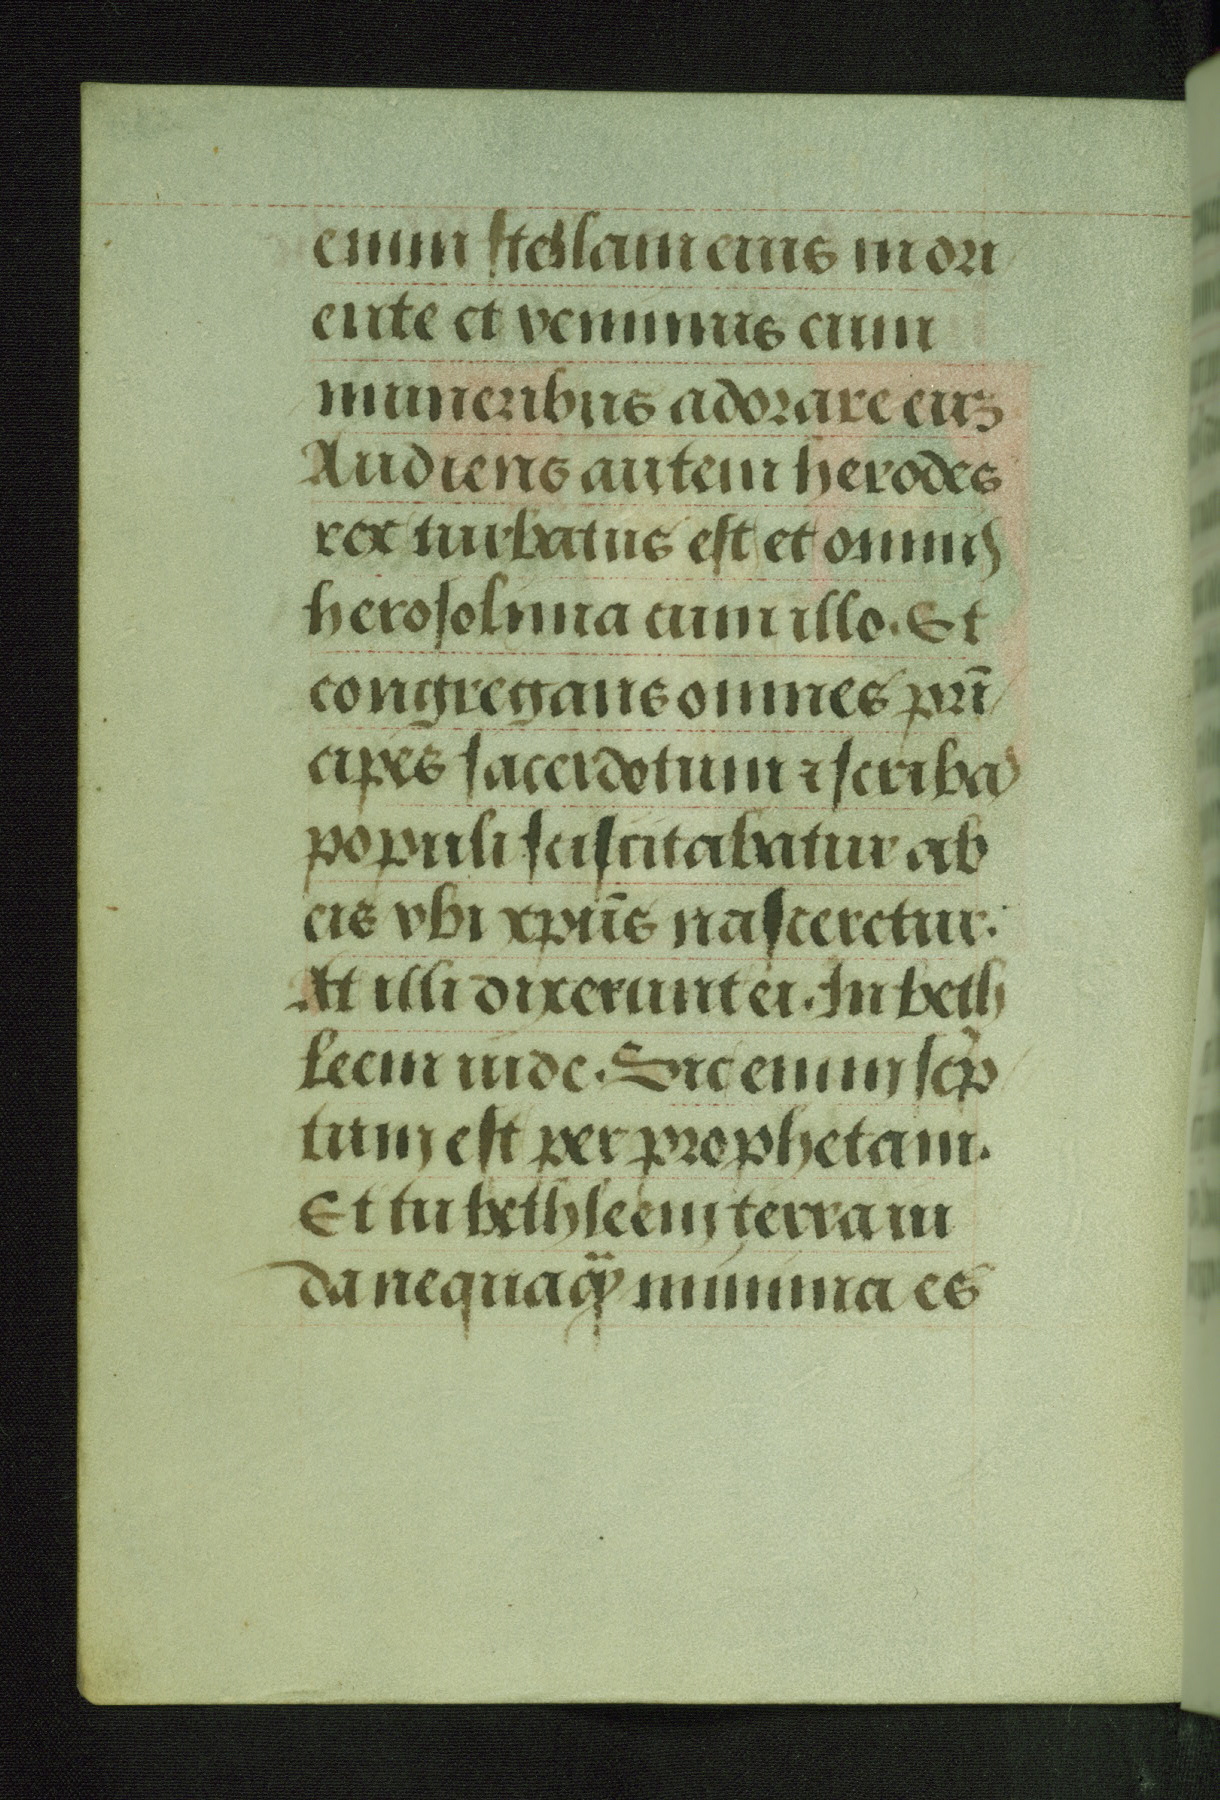 enim stellam eius in ori
ente et venimus cum
muneribus adorare euʒ
Audiens autem herodes
rex turbatus est et omnis
herosolima cum illo. Et
congregans omnes prī
cipes sacerdotum ⁊ scribas
populi sciscitabatur ab
eis vbi xpūs nasceretur.
At illi dixerunt ei. In beth
leem iude. Sic enim scp̄
tum est per prophetam.
Et tu bethleem terra iu
da nequaq̈ minima es